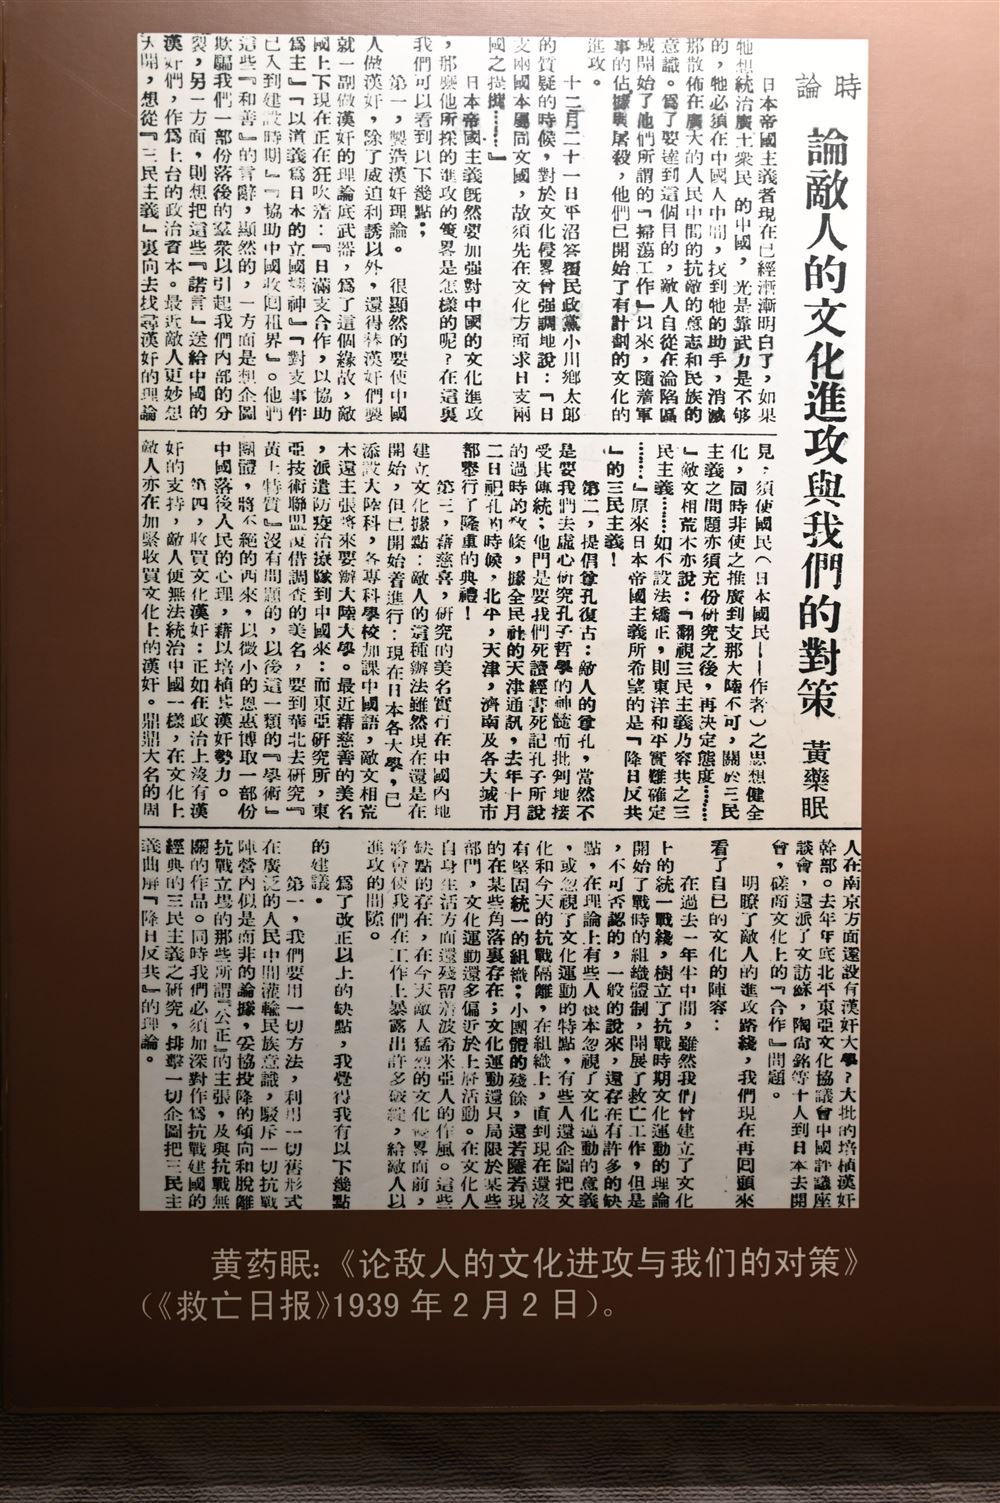 時論
論敵人的文化進攻與我們的對策 黃藥眠
日本帝國主義者現在已經漸漸明白了，如果
牠想統治廣土衆民的中國，光是靠武力是不够
的，牠必須在中國人中間，找到牠的助手，消滅
那散佈在廣大的人民中間的抗敵的意志和民族的
意識。爲了要達到這個目的，敵人自從在淪陷區
域開始了他們所謂的「掃蕩工作」以來，隨着軍
事的佔據與屠殺，他們已開始了有計劃的文化的
進攻。
十二月二十一日平沼答覆民政黨小川鄉太郎
的質疑的時候，對於文化侵畧曾强調地說：「日
支兩國本屬同文國，故須先在文化方面求日支兩
國之提攜……」
日本帝國主義旣然要加强對中國的文化進攻
，那麼他所採的進攻的策畧是怎樣的呢？在這裏
我們可以看到以下幾點：
第一，製造漢奸理論。很顯然的要使中國
人做漢奸，除了威迫利誘以外，還得替漢奸們製
就一副做漢奸的理論底武器，爲了這個緣故，敵
國上下現在正在狂吹着：『日滿支合作，以協助
爲主』「以道義爲日本的立國精神』『對支事件
已入到建設時期』『協助中國收囘租界』。他們
這些『和善』的言辭，顯然的，一方面是想企圖
欺騙我們一部份落後的羣衆以引起我們內部的分
裂，另一方面，則想把這些『諾言』送給中國的
漢奸們，作爲上台的政治資本。最近敵人更妙想
天開，想從『三民主義』裏向去找尋漢奸的理論
見，須使國民（日本國民——作者）之思想健全
化，同時非使之推廣到支那大陸不可，關於三民
主義之問題亦須充份研究之後，再決定態度……
』敵文相荒木亦說：『翻視三民主義乃容共之三
民主義……如不設法矯正，則東洋和平實難確定
……』原來日本帝國主義所希望的是『降日反共
』的三民主義！
第二，提倡尊孔復古：敵人的尊孔，當然不
是要我們去虛心研究孔子哲學的神髓而批判地接
受其傳統；他門是要我們死讀經書死記孔子所說
的過時的敎條，據全民社的天津通訊，去年十月
二日祀孔的時候，北平，天津，濟南及各大城市
都舉行了隆重的典禮！
第三，藉慈喜，研究的美名實行在中國內地
建立文化據點：敵人的這種辦法雖然現在還是在
開始，但已開始着進行：現在日本各大學，已
添設大陸科，各專科學校加課中國語，敵文相荒
木還主張將來要辦大陸大學。最近藉慈善的美名
，派遣防疫治療隊到中國來：而東亞硏究所，東
亞技術聯盟復借調查的美名，要到華北去硏究『
黃土特質』沒有問題的，以後這一類的『學術』
團體，將不絕的西來，以微小的恩惠博取一部份
中國落後人民的心理，藉以培植其漢奸勢力。
第四，收買文化漢奸：正如在政治上沒有漢
奸的支持，敵人便無法統治中國一樣，在文化上
敵人亦在加緊收買文化上的漢奸。鼎鼎大名的周
人在南京方面還設有漢奸大學？大批的培植漢奸
幹部。去年年底北平東亞文化協議會中國評議座
談會，還派了文訪蘇，陶尙銘等十人到日本去開
會，磋商文化上的『合作』問題。
明瞭了敵人的進攻路綫，我們現在再囘頭來
看了自己的文化的陣容：
在過去一年半中間，雖然我們曾建立了文化
上的統一戰綫，樹立了抗戰時期文化運動的理論
開始了戰時的組織體制，開展了救亡工作，但是
，不可否認的，一般的說來，還存在有許多的缺
點，在理論上有些人根本忽視了文化運動的意義
，或忽視了文化運動的特點，有些人還企圖把文
化和今天的抗戰隔離，在組織上，直到現在還沒
有堅固統一的組織；小團體的殘餘，還若隱若現
的在某些角落裏存在；文化運動還只局限於某些
部門，文化運動還多偏近於上層活動。在文化人
自身生活方面還殘留着波希米亞人的作風。這些
缺點的存在，在今天敵人猛烈的文化侵畧面前，
將會使我們在工作上暴露出許多破綻，給敵人以
進攻的間隙。
爲了改正以上的缺點，我覺得我有以下幾點
的建議。
第一，我們要用一切方法，利用一切舊形式
在廣泛的人民中間灌輸民族意識，駁斥一切抗戰
陣營內似是而非的論據，妥協投降的傾向和脫離
抗戰立場的那些所謂『公正』的主張，及與抗戰無
關的作品。同時我們必須加深對作爲抗戰建國的
經典的三民主義之研究，排擊一切企圖把三民主
義曲解『降日反共』的理論。
黄药眠：《论敌人的文化进攻与我们的对策》
（《救亡日报》1939 年 2 月 2 日）。